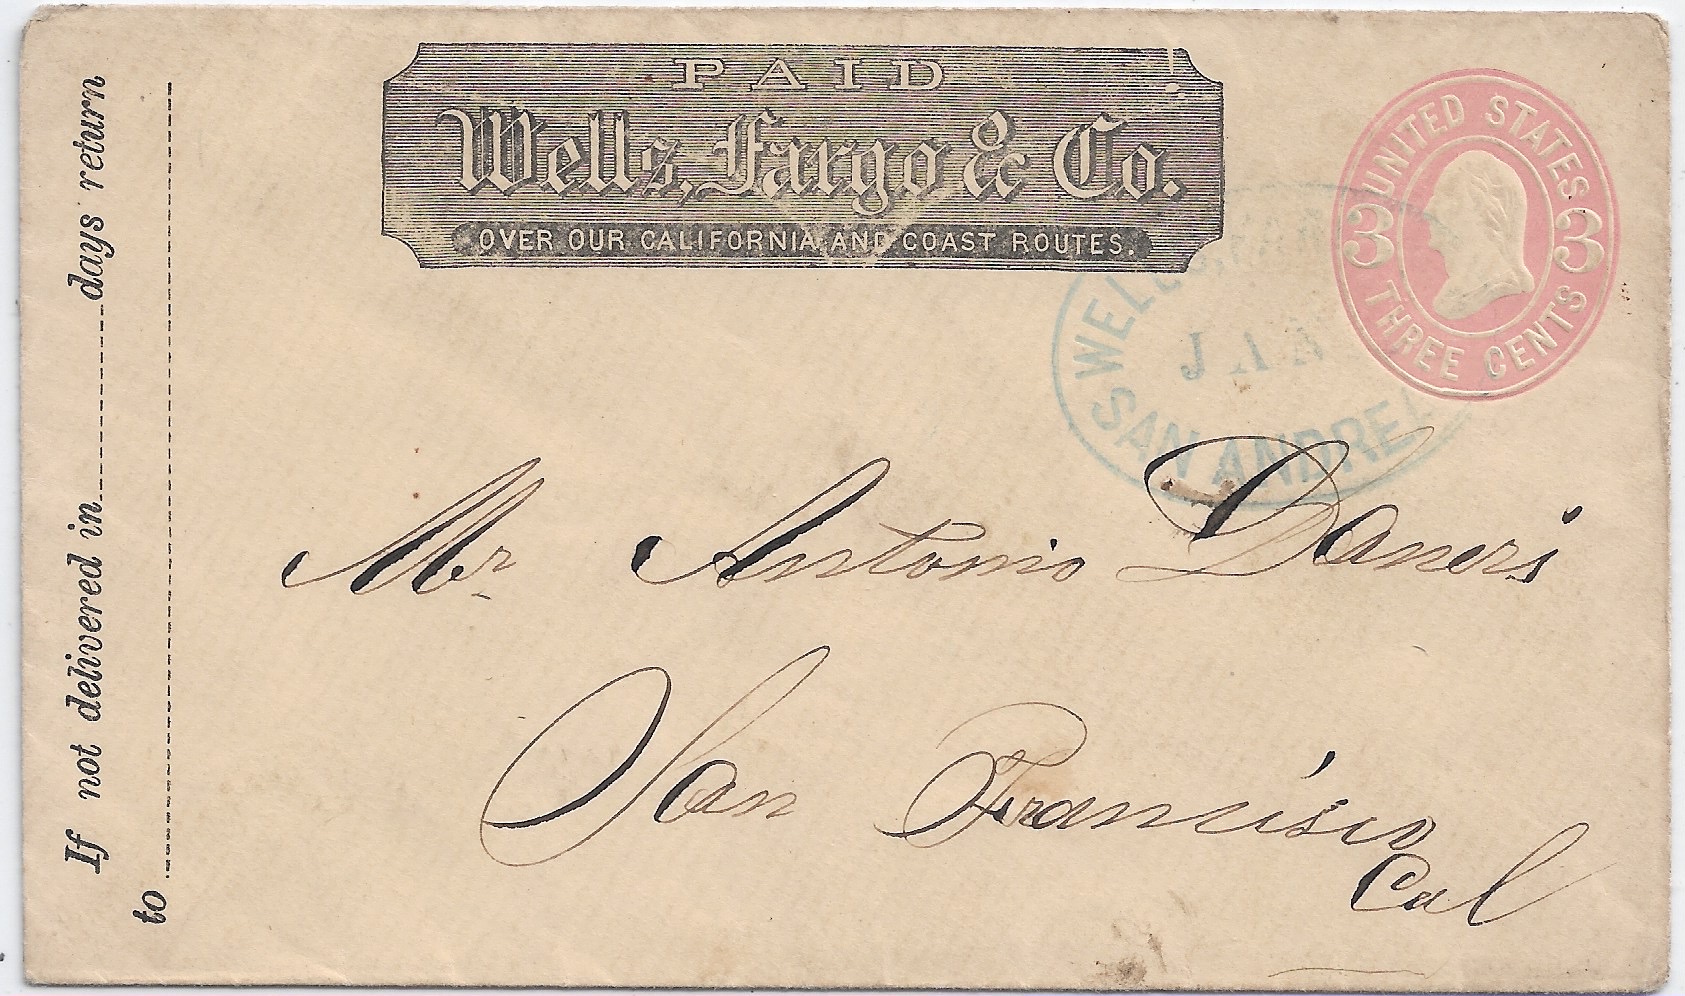 PAID
Wells, Fargo & Co.
OVER OUR CALIFORNIA AND COAST ROUTES.
UNITED STATES
3 3
THREE CENTS
WELLS
JAN
SAN ANDREA
If not delivered in days return
to
Mr Antonio Daneri
San Francisco
Cal